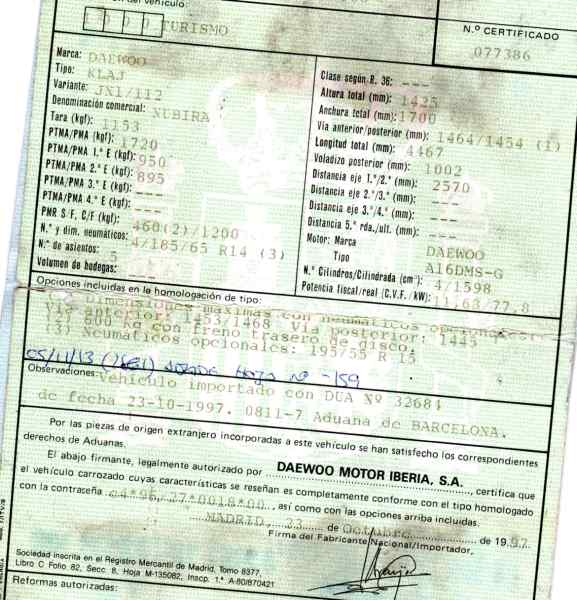 del vehículo:
TURISMO
N.º CERTIFICADO
077386
Marca: DAEWOO
Tipo: KLAJ
Variante: JX1/112
Denominación comercial: NUBIRA
Tara (kgf): 1153
PTMA/PMA (kgf): 1720
PTMA/PMA 1.º E (kgf): 950
PTMA/PMA 2.º E (kgf): 895
PTMA/PMA 3.º E (kgf): ---
PTMA/PMA 4.º E (kgf): ---
PMR S/F, C/F (kgf): 460(2)/1200
N.º y dim. neumáticos: 4/185/65 R14 (3)
N.º de asientos: 5
Volumen de bodegas: ---
Clase según R. 36: ---
Altura total (mm): 1425
Anchura total (mm): 1700
Vía anterior/posterior (mm): 1464/1454 (1)
Longitud total (mm): 4467
Voladizo posterior (mm): 1002
Distancia eje 1.º/2.º (mm): 2570
Distancia eje 2.º/3.º (mm): ---
Distancia eje 3.º/4.º (mm): ---
Distancia 5.ª rda./ult. (mm): ---
Motor: Marca DAEWOO
Tipo A16DMS-G
N.º Cilindros/Cilindrada (cm³): 4/1598
Potencia fiscal/real (C.V.F. / kW): 11,63/77,8
Opciones incluidas en la homologación de tipo:
Dimensiones máximas con neumáticos opcionales:
Vía anterior: 1453/1468 Vía posterior: 1445
600 kg con freno trasero de disco.
(3) Neumáticos opcionales: 195/55 R 15
05/11/13
Observaciones:
Vehículo importado con DUA Nº 32684
de fecha 23-10-1997. 0811-7 Aduana de BARCELONA.
Por las piezas de origen extranjero incorporadas a este vehículo se han satisfecho los correspondientes
derechos de Aduanas.
El abajo firmante, legalmente autorizado por DAEWOO MOTOR IBERIA, S.A., certifica que
el vehículo carrozado cuyas características se reseñan es completamente conforme con el tipo homologado
con la contraseña e4*96/27*0018*00, así como con las opciones arriba incluidas.
MADRID, de Octubre de 1997
Firma del Fabricante Nacional/Importador,
Sociedad inscrita en el Registro Mercantil de Madrid, Tomo 8377,
Libro C Folio 82, Secc. 8, Hoja M-135082, Inscp. 1.ª A-80/870421
Reformas autorizadas: